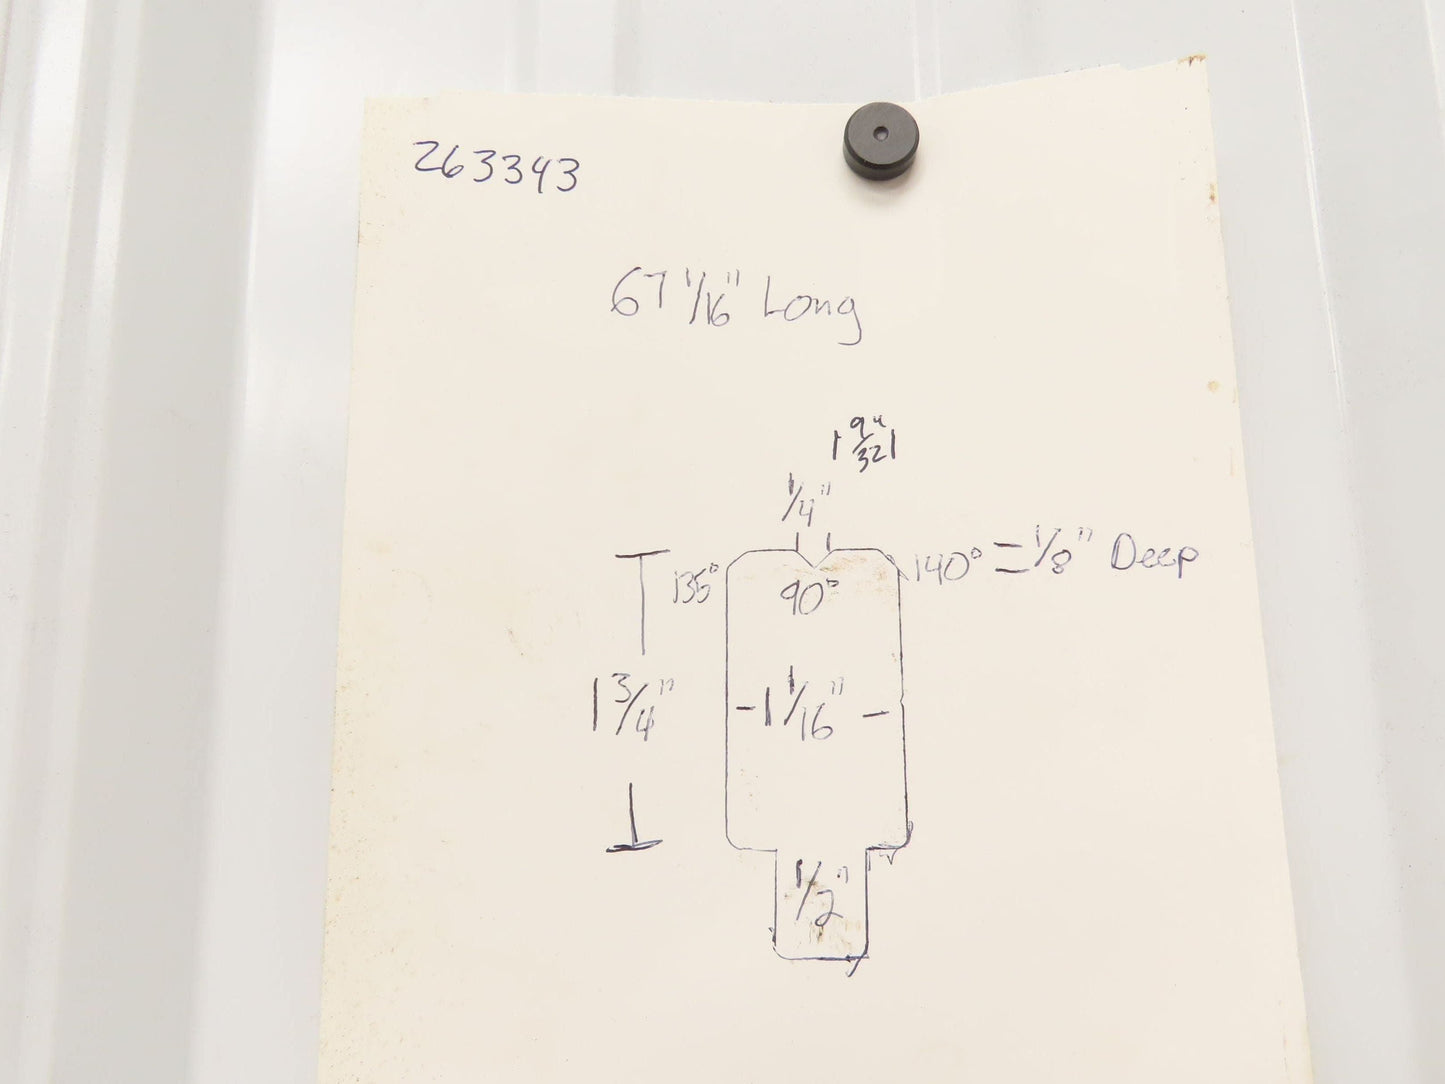 263343
67 1/16" Long
| 9/32" |
1/4"
135°
90°
140°
1/8" Deep
1 3/4"
1 1/16"
1/2"